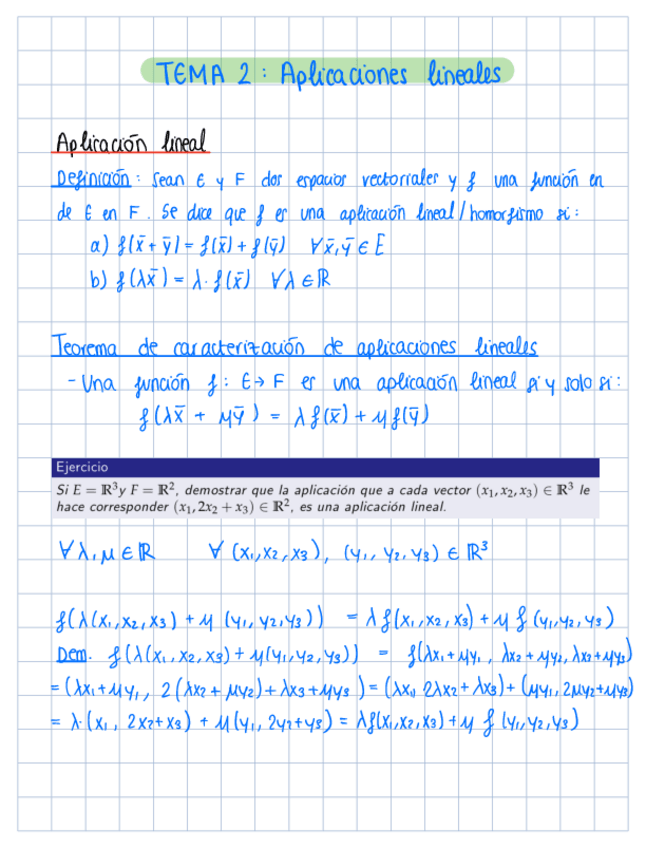 TEMA 2: Aplicaciones lineales
Aplicación lineal
Definición: Sean E y F dos espacios vectoriales y f una función en
de E en F. Se dice que f es una aplicación lineal/homorfismo si:
a) f(x̄ + ȳ) = f(x̄) + f(ȳ) ∀x̄,ȳ ∈ E
b) f(λx̄) = λ· f(x̄) ∀λ ∈ ℝ
Teorema de caracterización de aplicaciones lineales
- Una función f: E→ F es una aplicación lineal si y solo si:
f(λx̄ + μȳ) = λ f(x̄) + μ f(ȳ)
Ejercicio
Si E = ℝ³ y F = ℝ², demostrar que la aplicación que a cada vector (x₁, x₂, x₃) ∈ ℝ³ le
hace corresponder (x₁, 2x₂ + x₃) ∈ ℝ², es una aplicación lineal.
∀ λ, μ ∈ ℝ ∀ (x₁, x₂, x₃), (y₁, y₂, y₃) ∈ ℝ³
f(λ(x₁,x₂,x₃) + μ (y₁,y₂,y₃)) = λ f(x₁,x₂,x₃) + μ f (y₁,y₂,y₃)
Dem. f(λ(x₁,x₂,x₃) + μ(y₁,y₂,y₃)) = f(λx₁+μy₁, λx₂+μy₂, λx₃+μy₃)
= (λx₁+μy₁, 2(λx₂+μy₂)+λx₃+μy₃) = (λx₁, 2λx₂+λx₃)+(μy₁, 2μy₂+μy₃)
= λ·(x₁, 2x₂+x₃) + μ(y₁, 2y₂+y₃) = λf(x₁,x₂,x₃)+μ f (y₁,y₂,y₃)